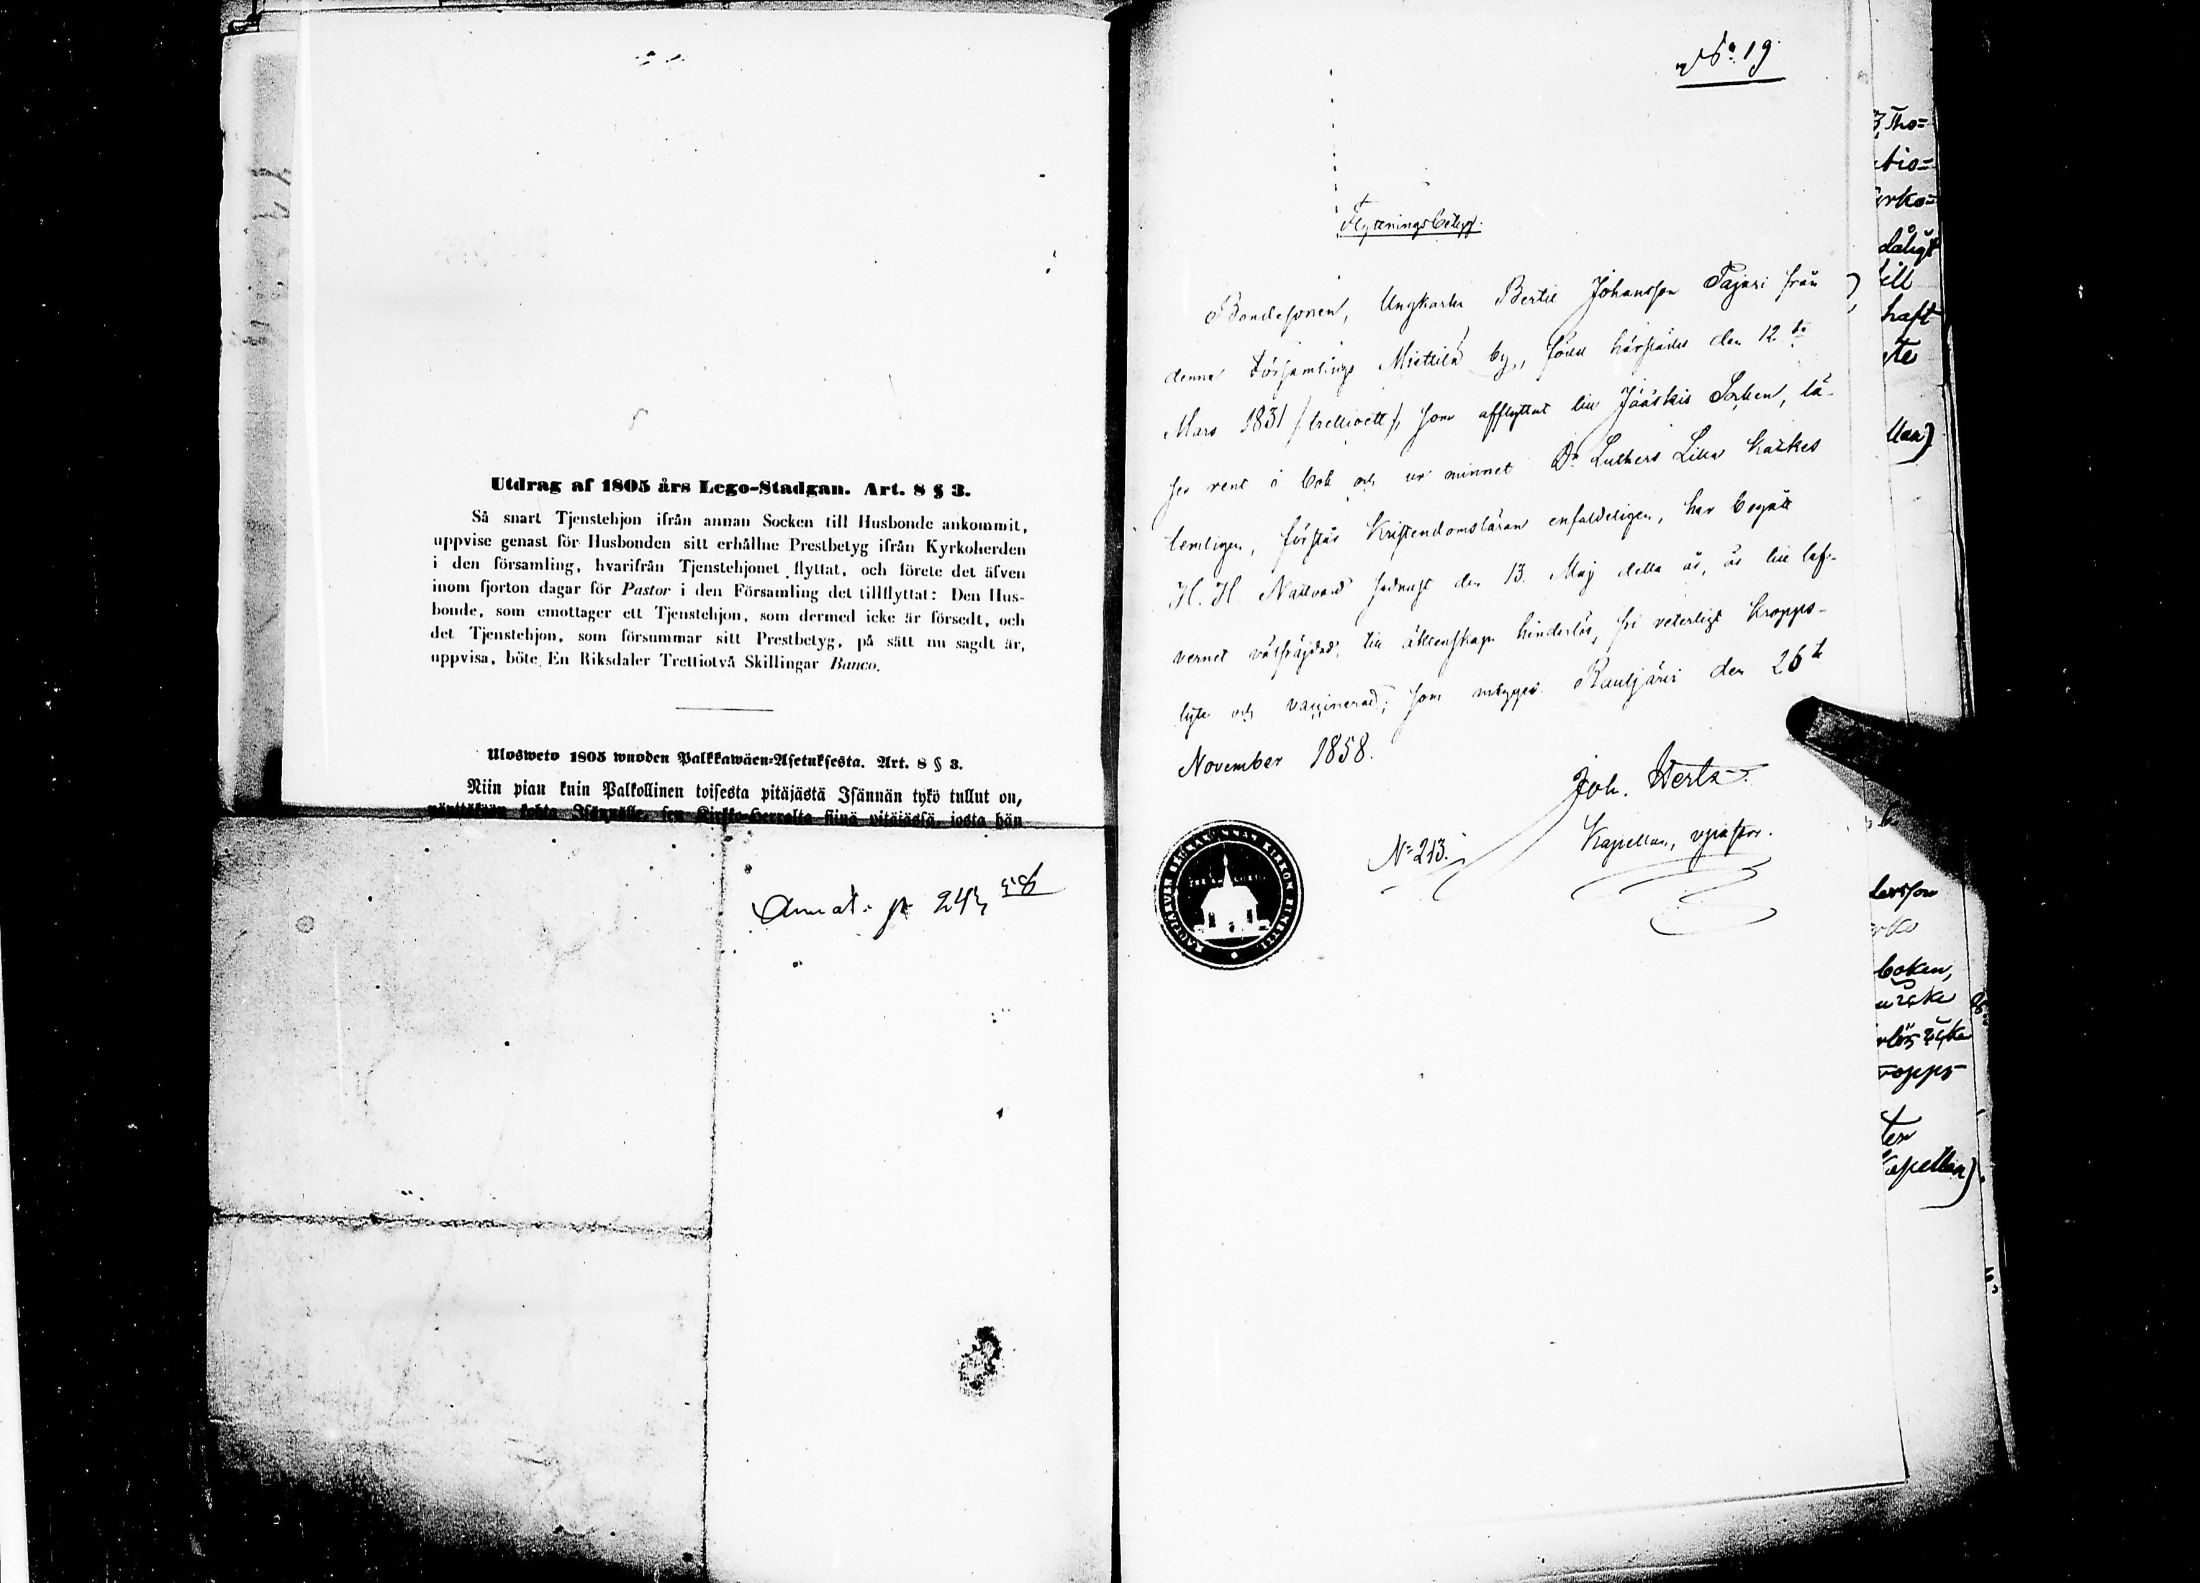 Utdrag af 1805 års Lego-Stadgan. Art. 8 § 3.
Så snart Tjenstehjon ifrån annan Socken till Husbonde ankommit,
uppvise genast för Husbonden sitt erhållne Prestbetyg ifrån Kyrkoherden
i den församling, hvarifrån Tjenstehjonet flyttat, och förete det äfven
inom fjorton dagar för Pastor i den Församling det tillflyttat: Den Hus-
bonde, som emottager ett Tjenstehjon, som dermed icke är försedt, och
det Tjenstehjon, som försummar sitt Prestbetyg, på sätt nu sagdt är,
uppvisa, böte En Riksdaler Trettiotvå Skillingar Banco.
Ulosweto 1805 wuoden Palkkawäen-Asetuksesta. Art. 8 § 3.
Niin pian kuin Palkollinen toisesta pitäjästä Isännän tykö tullut on,
näyttäkään kohta Isännälle, sen Kirkko-Herralta siinä pitäjässä, josta hän
No 19
Flyttningsbetyg.
Bondesonen, Ungkarlen Bertil Johansson Pajari från
denna Församlings Miettilä by, född härstädes den 12te
Mars 1831 /trettioett/, som afflyttat till Jääskis Socken, lä-
ser rent i bok och ur minnet Dr Luthers Lilla Katekes
temligen, förstår Kristendomsläran enfaldeligen, har begått
H. H. Nattvard sednast den 13 Maj detta år, är till lef-
vernet välfräjdad, till äktenskap hinderlös, fri veterligt kropps-
lyte och vaccinerad; som intygas. Rautjärvi den 26te
November 1858.
Joh. Wertz
Kapellan, vpastor.
No 213.
RAUTJÄRVEN KIRKON SINETTI
3, Tho-
låligt
till
haft
boken,
kropps-
Kapellan)